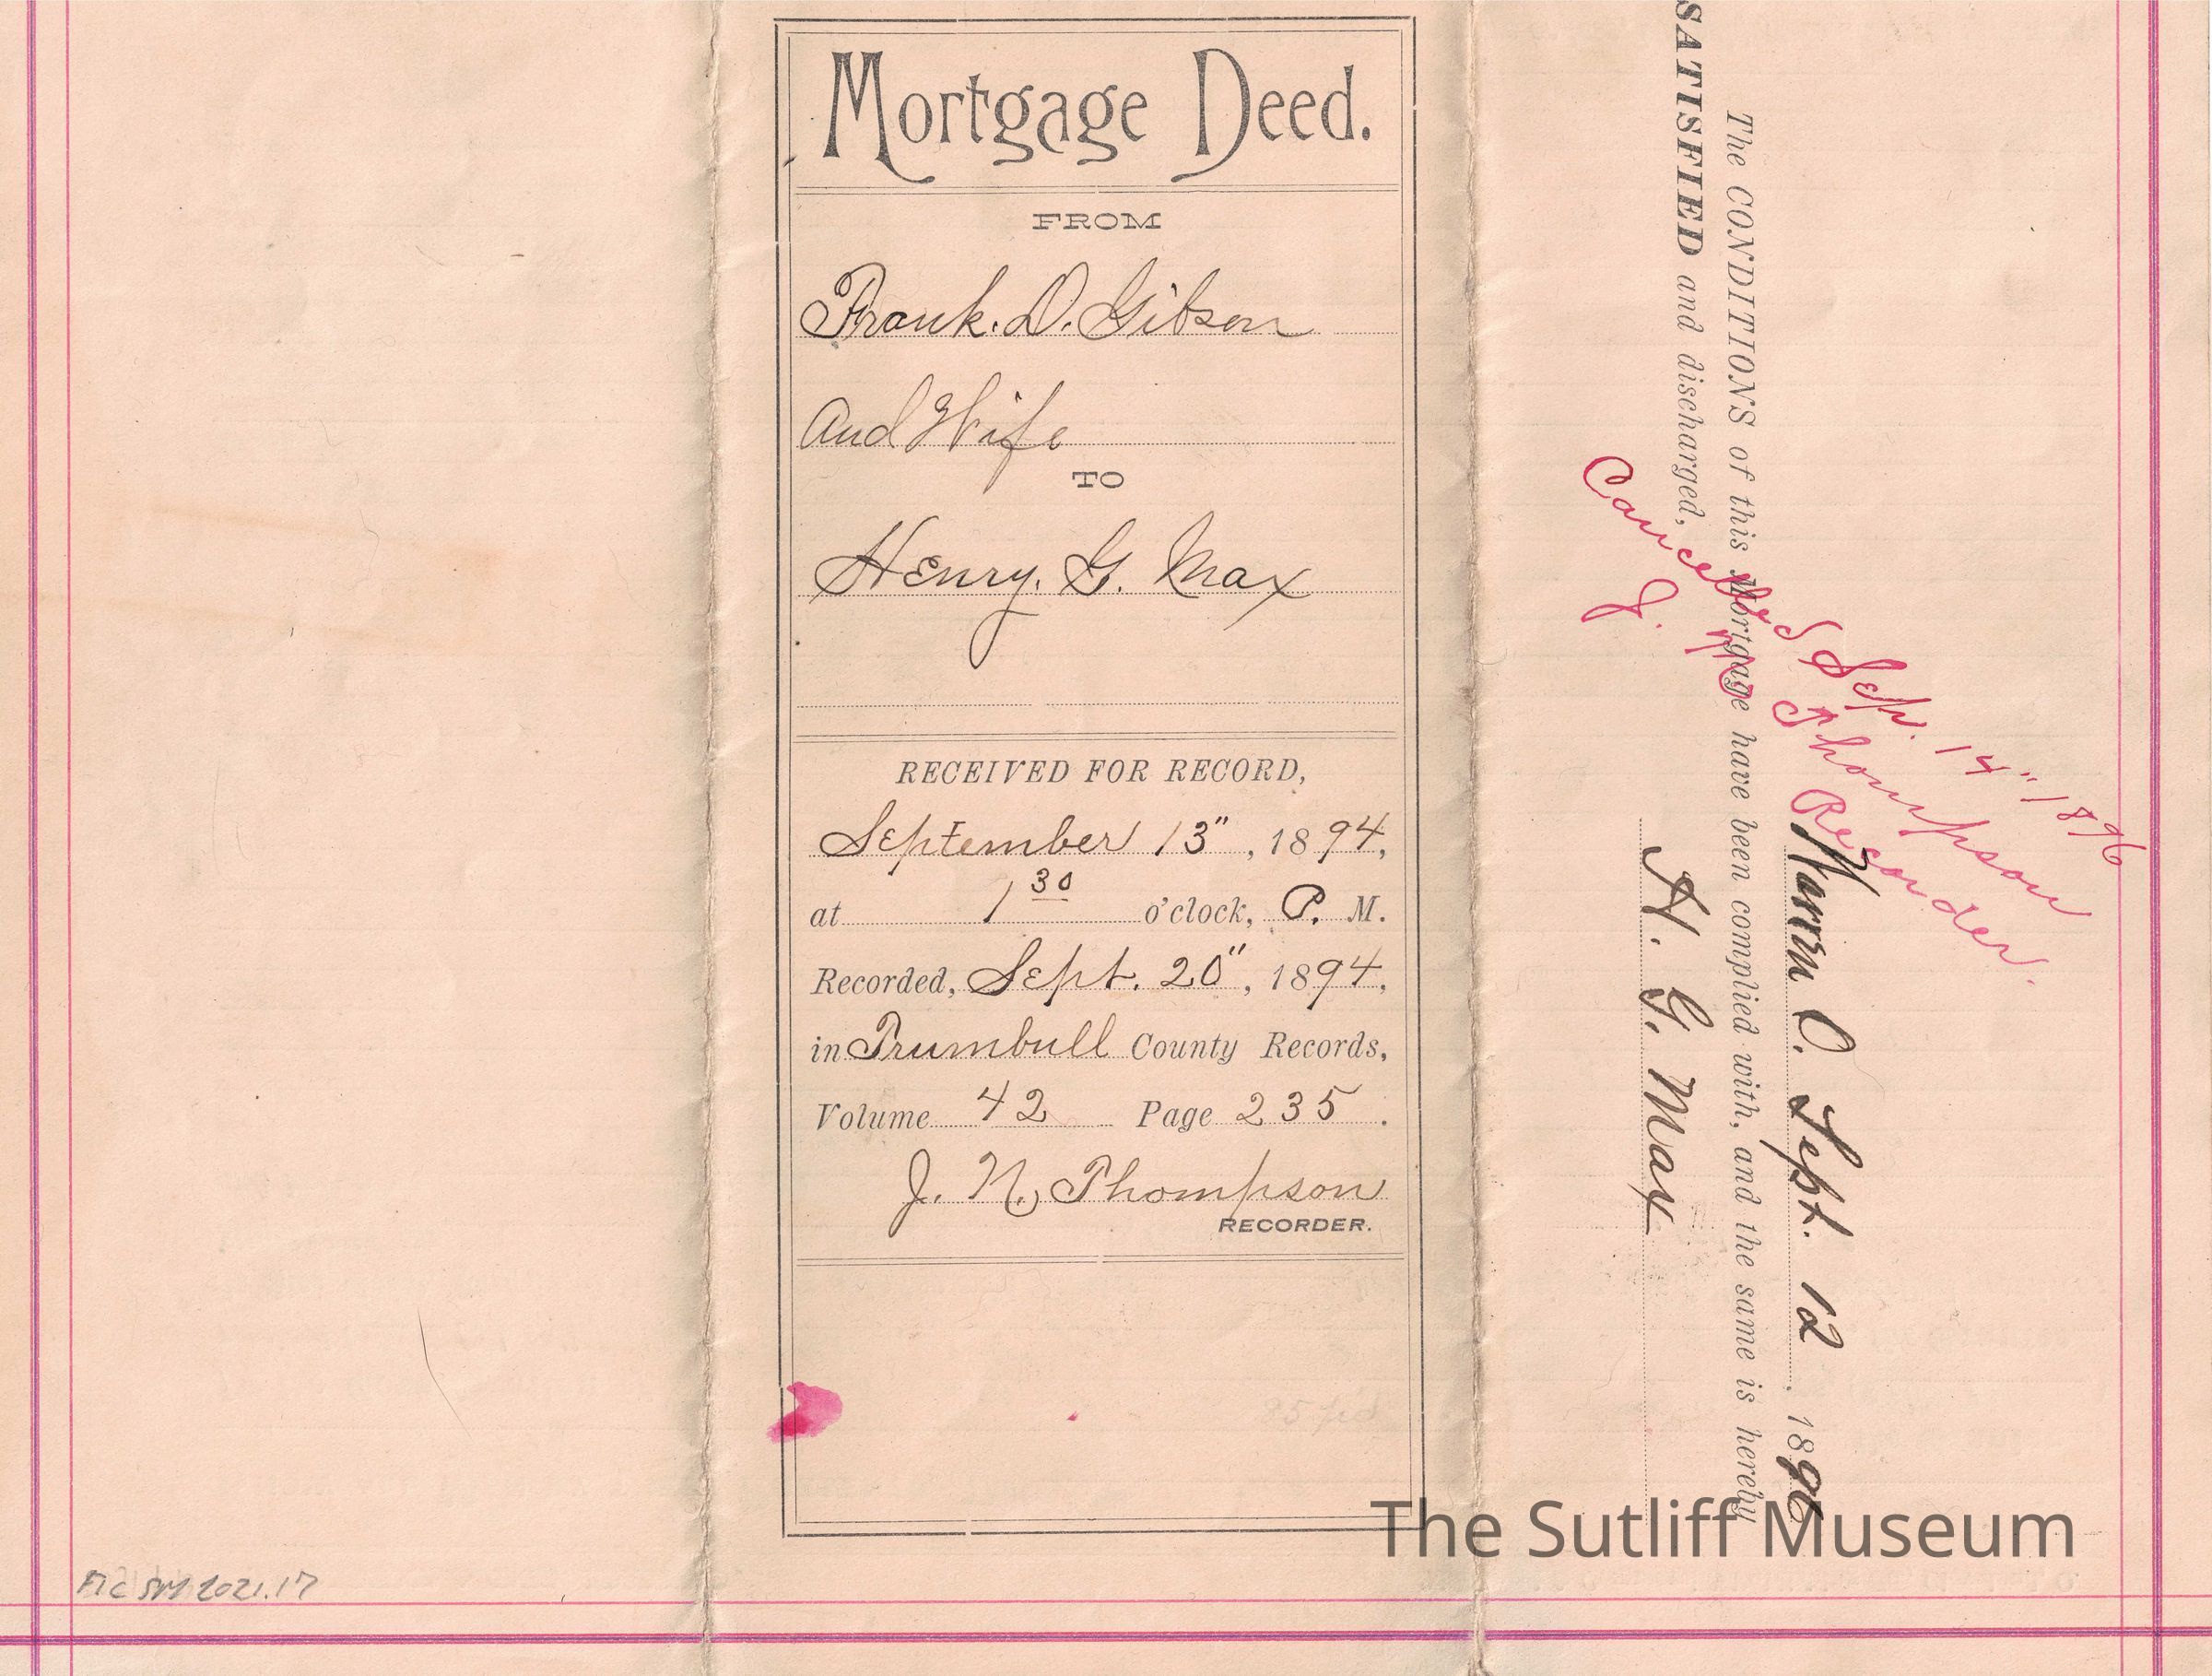 Mortgage Deed.
FROM
Frank. D. Gibson
And Wife
TO
Henry. G. Max
RECEIVED FOR RECORD,
September 13", 1894,
at 1 30 o'clock, P. M.
Recorded, Sept. 20", 1894,
in Trumbull County Records,
Volume 42 Page 235.
J. N. Thompson
RECORDER.
The CONDITIONS of this Mortgage have been complied with, and the same is hereby
SATISFIED and discharged,
Warren O. Sept. 12, 1896
H. G. Max
Cancelled Sep. 14" 1896
J. N. Thompson
Recorder.
2021.17
The Sutliff Museum